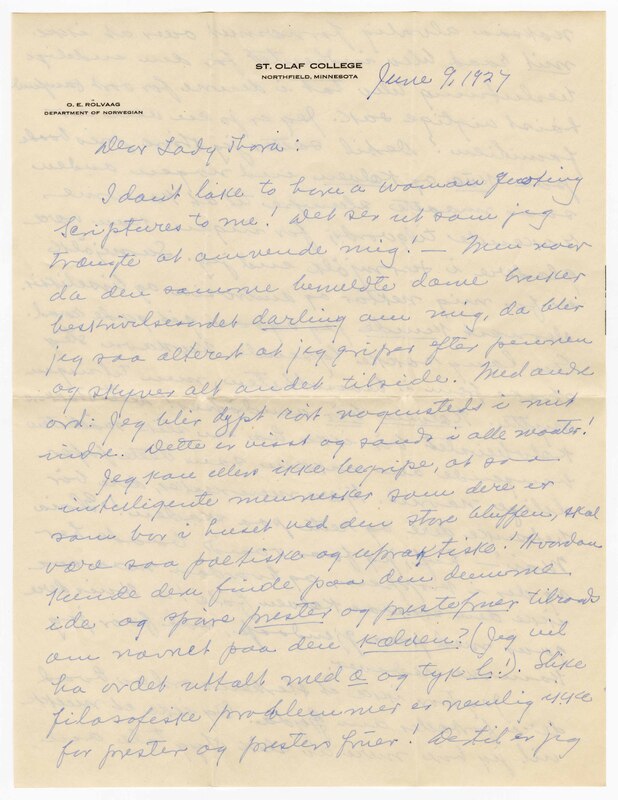 ST. OLAF COLLEGE
NORTHFIELD, MINNESOTA
June 9, 1927
O. E. RÖLVAAG
DEPARTMENT OF NORWEGIAN
Dear Lady Thora:
I don't like to have a woman quoting
Scriptures to me! Det ser ut som jeg
trængte at omvende mig! — Men naar
da den samme bemeldte dame bruker
beskrivelsesordet darling om mig, da blir
jeg saa altereret at jeg griper efter pennen
og skyver alt andet tilside. Med andre
ord: Jeg blir dypt rørt nogensteds i mit
indre. Dette er visst og sandt i alle maater!
Jeg kan ellers ikke begripe, at saa
intelligente mennesker som dere er
som bor i huset ved den store bluffen, skal
være saa poetiske og upraktiske! Hvordan
kunde dere finde paa den dumme
ide og spørre prester og prestefruer tilraads
om navnet paa den kælven? (Jeg vil
ha ordet uttalt med æ og tyk l!). Slike
filosofiske problemmer er nemlig ikke
for prester og presters fruer! Dertil er jeg